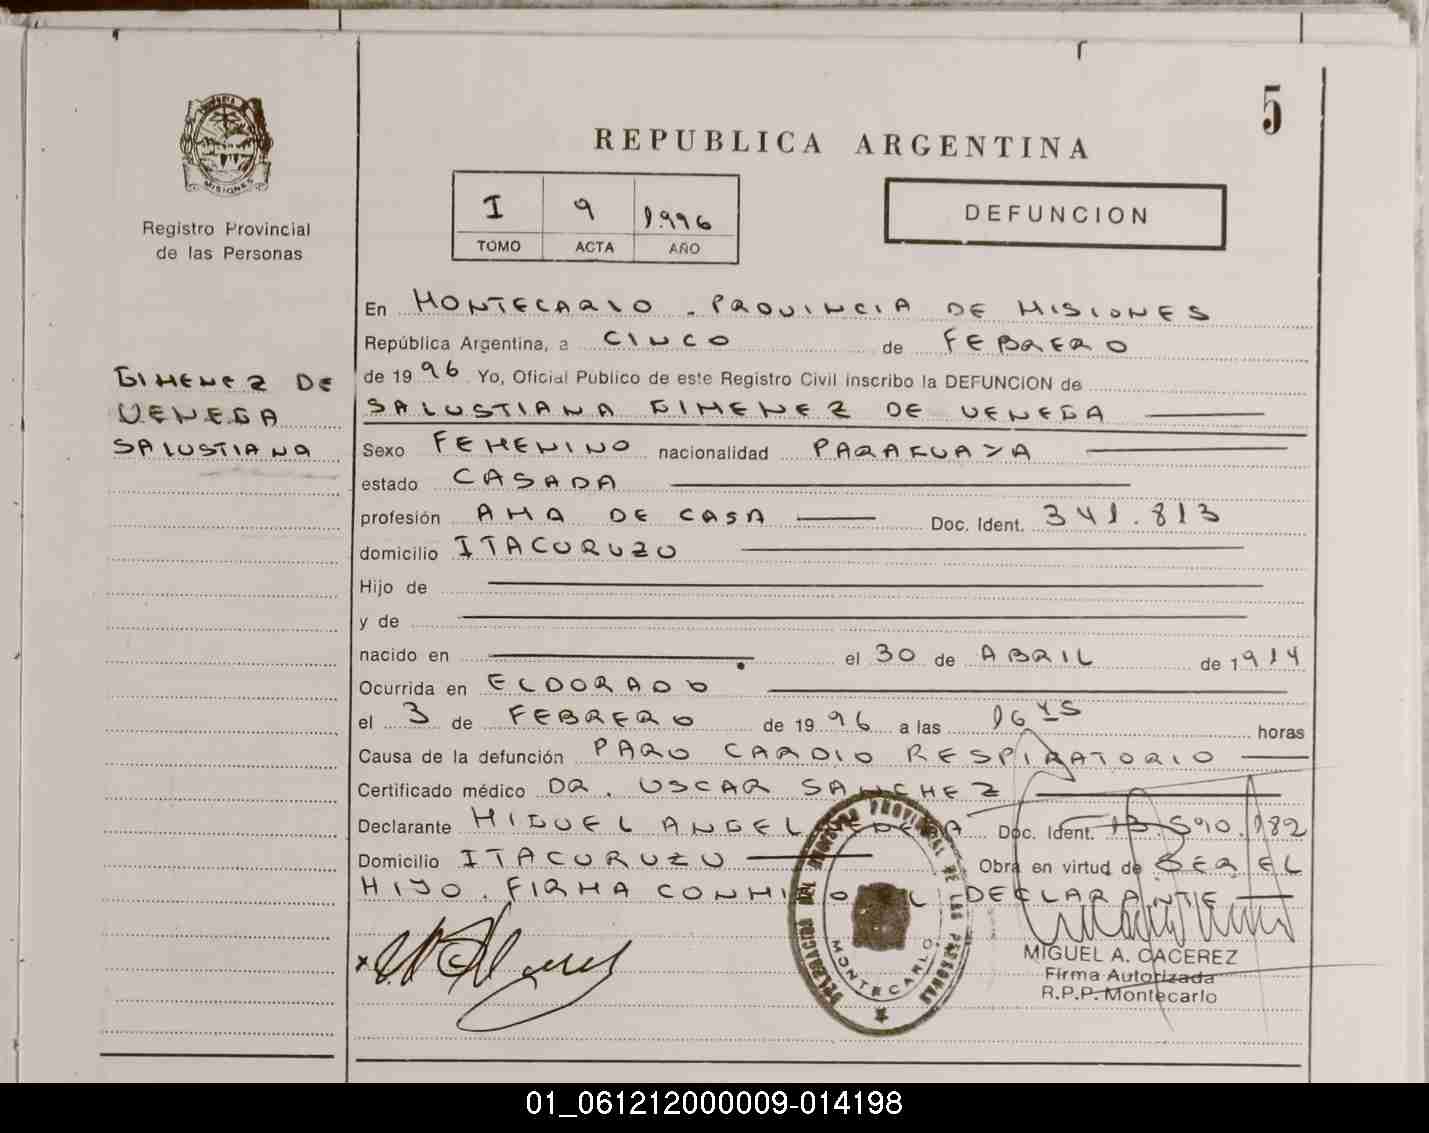 5
REPUBLICA ARGENTINA
MISIONES
Registro Provincial
de las Personas
I 9 1.996
TOMO ACTA AÑO
DEFUNCION
GIMENEZ DE
VENEGA
SALUSTIANA
En MONTECARLO. PROVINCIA DE MISIONES
República Argentina, a CINCO de FEBRERO
de 1996 Yo, Oficial Publico de este Registro Civil inscribo la DEFUNCION de
SALUSTIANA GIMENEZ DE VENEGA
Sexo FEMENINO nacionalidad PARAGUAYA
estado CASADA
profesión AMA DE CASA Doc. Ident. 341.813
domicilio ITACURUZU
Hijo de
y de
nacido en el 30 de ABRIL de 1914
Ocurrida en ELDORADO
el 3 de FEBRERO de 1996 a las 16 45 horas
Causa de la defunción PARO CARDIO RESPIRATORIO
Certificado médico DR. OSCAR SANCHEZ
Declarante MIGUEL ANGEL Doc. Ident. 13.590.182
Domicilio ITACURUZU Obra en virtud de SER EL
HIJO. FIRMA CONMIGO EL DECLARANTE
DELEGACION DEL REGISTRO PROVINCIAL DE LAS PERSONAS
MONTECARLO
MIGUEL A. CACEREZ
Firma Autorizada
R.P.P. Montecarlo
01_061212000009-014198